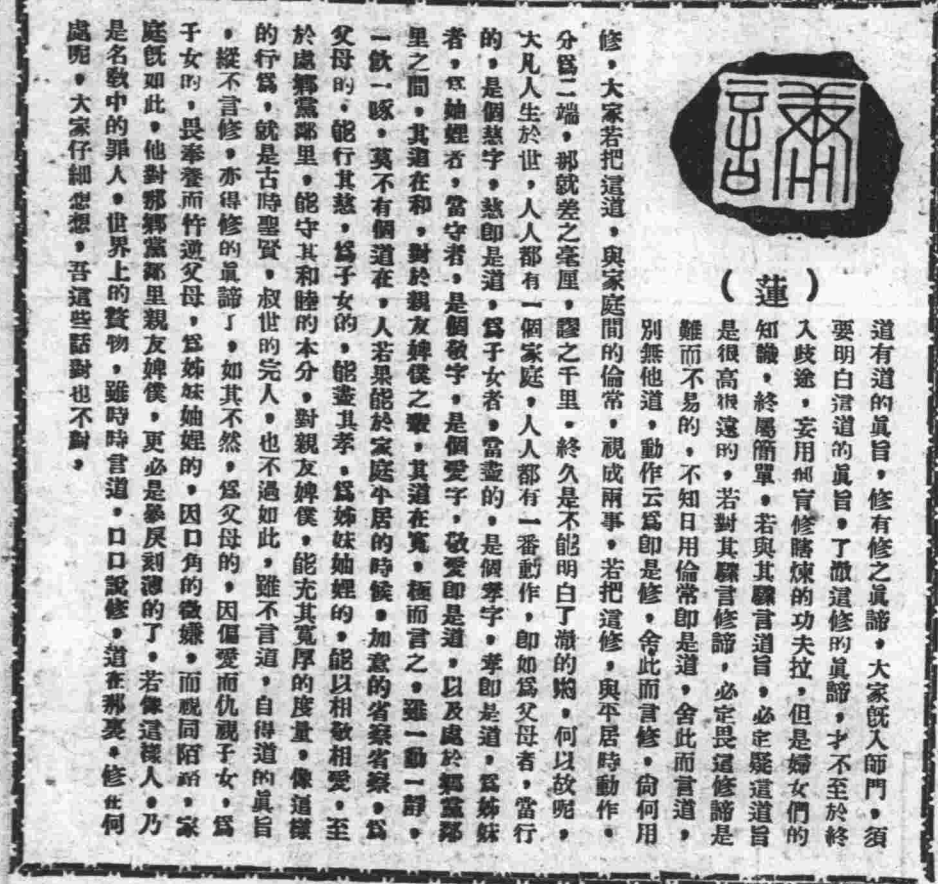 講
（蓮）
道有道的眞旨，修有修之眞諦，大家旣入師門，須
要明白這道的眞旨，了澈這修的眞諦，才不至於終
入歧途，妄用 盲修瞎煉的功夫拉，但是婦女們的
知識，終屬簡單，若與其驟言道旨，必定疑這道旨
是很高很遠的，若對其驟言修諦，必定畏這修諦是
難而不易的，不知日用倫常卽是道，舍此而言道，
別無他道，動作云爲卽是修，舍此而言修，尙何用
修，大家若把這道，與家庭間的倫常，視成兩事，若把這修，與平居時動作，
分爲二端，那就差之毫厘，謬之千里，終久是不能明白了澈的 ，何以故呢，
大凡人生於世，人人都有一個家庭，人人都有一番動作，卽如爲父母者，當行
的，是個慈字，慈卽是道，爲子女者，當盡的，是個孝字，孝卽是道，爲姊妹
者，爲妯娌者，當守者，是個敬字，是個愛字，敬愛卽是道，以及處於鄉黨鄰
里之間，其道在和，對於親友婢僕之 ，其道在寬，極而言之，雖一動一靜，
一飲一啄，莫不有個道在，人若果能於家庭平居的時候，加意的省察省察，爲
父母的，能行其慈，爲子女的，能盡其孝，爲姊妹妯娌的，能以相敬相愛，至
於處鄉黨鄰里，能守其和睦的本分，對親友婢僕，能充其寬厚的度量，像這樣
的行爲，就是古時聖賢，叔世的完人，也不過如此，雖不言道，自得道的眞旨
，縱不言修，亦得修的眞諦了，如其不然，爲父母的，因偏愛而仇視子女，爲
子女的，畏奉養而忤逆父母，爲姊妹妯娌的，因口角的微嫌，而視同陌路，家
庭旣如此，他對那鄉黨鄰里親友婢僕，更必是暴戾刻薄的了，若像這樣人，乃
是名敎中的罪人，世界上的贅物，雖時時言道，口口說修，道在那裏，修在何
處呢，大家仔細想想，吾這些話對也不對，